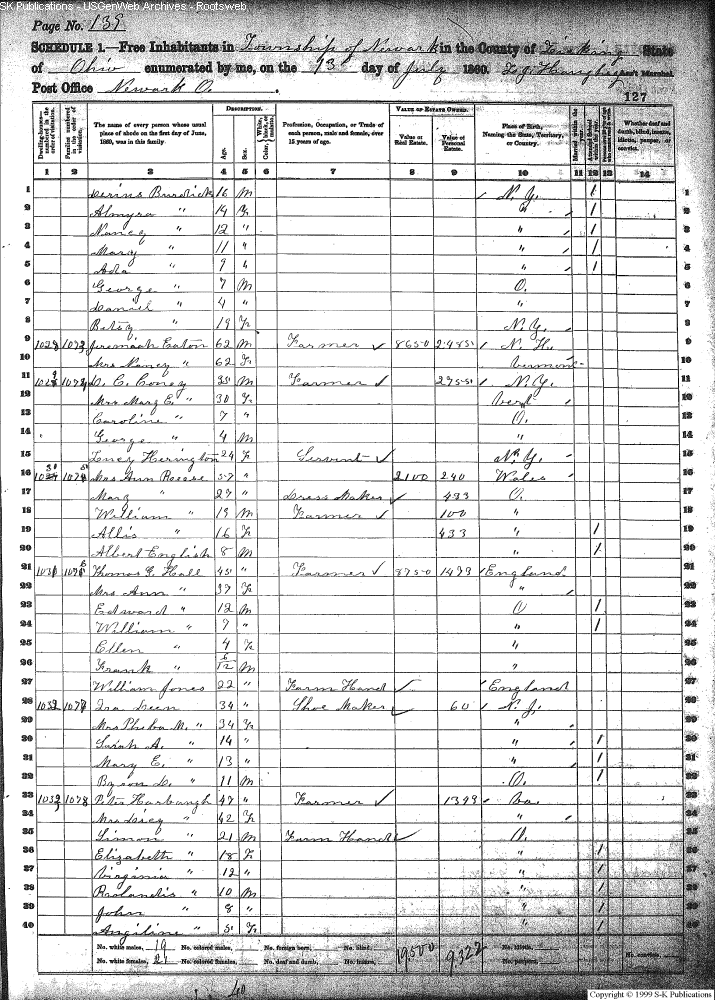 SK Publications - USGenWeb Archives - Rootsweb
Page No. 139
SCHEDULE 1.—Free Inhabitants in Township of Newark in the County of Licking State
of Ohio enumerated by me, on the 13 day of July 1860. Ass't Marshal.
Post Office Newark O.
127
Dwelling-houses—numbered in the order of visitation. Families numbered in the order of visitation. The name of every person whose usual place of abode on the first day of June, 1860, was in this family. DESCRIPTION. Age. Sex. Color, White, black, or mulatto. Profession, Occupation, or Trade of each person, male and female, over 15 years of age. VALUE OF ESTATE OWNED. Value of Real Estate. Value of Personal Estate. Place of Birth, Naming the State, Territory, or Country. Married within the year. Attended School within the year. Whether deaf and dumb, blind, insane, idiotic, pauper, or convict.
1 2 3 4 5 6 7 8 9 10 11 12 13 14
1 Burdick 16 M N.Y. / 1
2 Almyra " 14 F " / 2
3 Nancy " 12 " " / 3
4 Mary " 11 " " / 4
5 Ada " 9 " " / 5
6 George " 7 M O. 6
7 Daniel " 4 " " 7
8 Betsy " 19 F N.Y. 8
9 1028 1073 Jeremiah Eaton 62 M Farmer ✓ 8650 2485 N.H. 9
10 Mrs Nancy " 62 F Vermont 10
11 1029 1074 C. Coney 35 M Farmer ✓ N.Y. 11
12 Mrs Mary E. " 30 F Vert 12
13 Caroline " 7 " O. 13
14 George " 4 M " 14
15 Lucy Herington 24 F Servent ✓ N.Y. 15
16 Mrs Ann Reese 57 " 2100 240 Wales 16
17 Mary " 27 " Dress Maker ✓ 433 O. 17
18 William " 19 M Farmer ✓ 100 " 18
19 Allis " 16 F 433 " / 19
20 Albert English 8 M " / 20
21 1031 1076 Thomas G. Hall 45 " Farmer ✓ 8750 1493 England 21
22 Mrs Ann " 37 F " 22
23 Edward " 12 M O / 23
24 William " 9 " " / 24
25 Ellen " 4 F " 25
26 Frank " 6/12 M " 26
27 William Jones 22 " Farm Hand ✓ England 27
28 1032 1077 Ira 34 " Shoe Maker ✓ 60 N.J. 28
29 Mrs Pheba M. " 34 F " 29
30 Sarah A. " 14 " " / 30
31 Mary E. " 13 " " / 31
32 Byron L. " 11 M O. / 32
33 1033 1078 Peter Harbaugh 47 " Farmer ✓ 1399 33
34 Mrs " 42 F " 34
35 Simon " 21 M Farm Hand ✓ O. 35
36 Elizabeth " 18 F " / 36
37 Virginia " 12 " " / 37
38 " 10 M " / 38
39 John " 8 " " / 39
40 Angiline " 5 F " / 40
No. white males, 19 No. colored males, No. foreign born, No. blind, 19,500 9,322 No. idiotic, No. convicts,
No. white females, 21 No. colored females, No. deaf and dumb, No. insane, No. paupers,
40
Copyright © 1999 S-K Publications